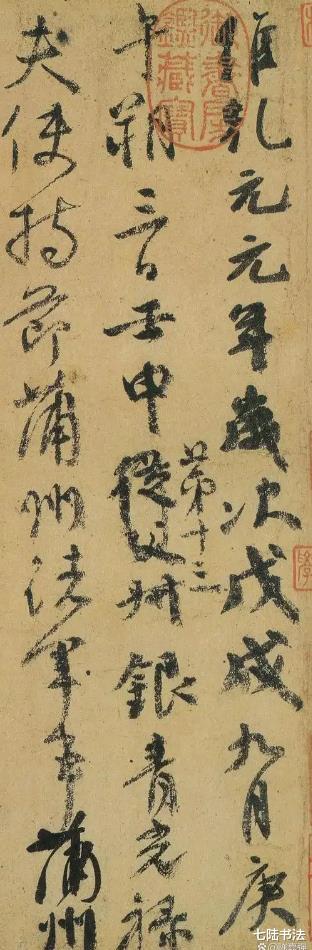 維乾元元年歲次戊戌九月庚
午朔三日壬申
第十三
從父銀青光祿
夫使持節蒲州諸軍事蒲州
御書房鑑藏寶
七陆书法